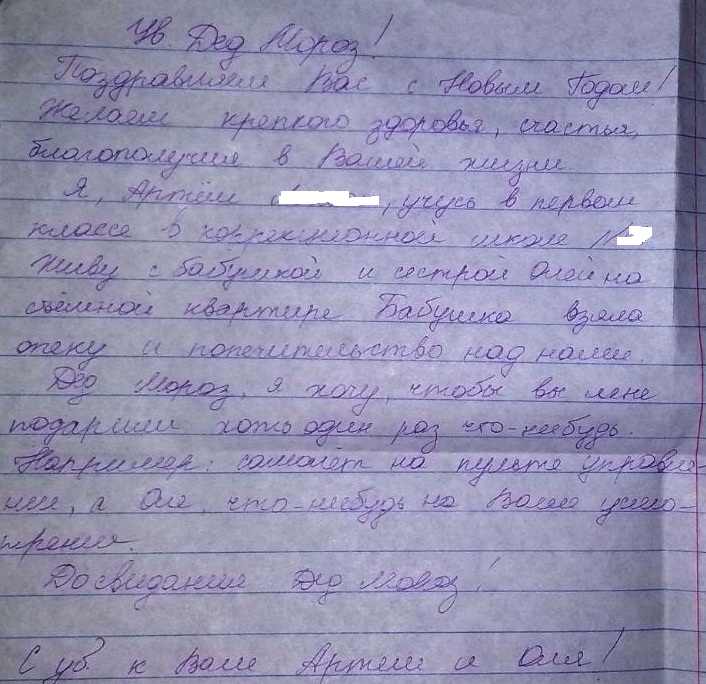 Ув. Дед Мороз!
Поздравляем Вас с Новым Годом!
Желаем крепкого здоровья, счастья,
благополучия в Вашей жизни.
Я, Артём, учусь в первом
классе в коррекционной школе №
Живу с бабушкой и сестрой Олей на
съёмной квартире Бабушка взяла
опеку и попечительство над нами.
Дед Мороз, я хочу, чтобы вы мне
подарили хоть один раз что-нибудь.
Например: самолёт на пульте управле-
нии, а Оле, что-нибудь на Ваше усмо-
трения.
Досвидания Дед Мороз!
С ув. к Вам Артём и Оля!